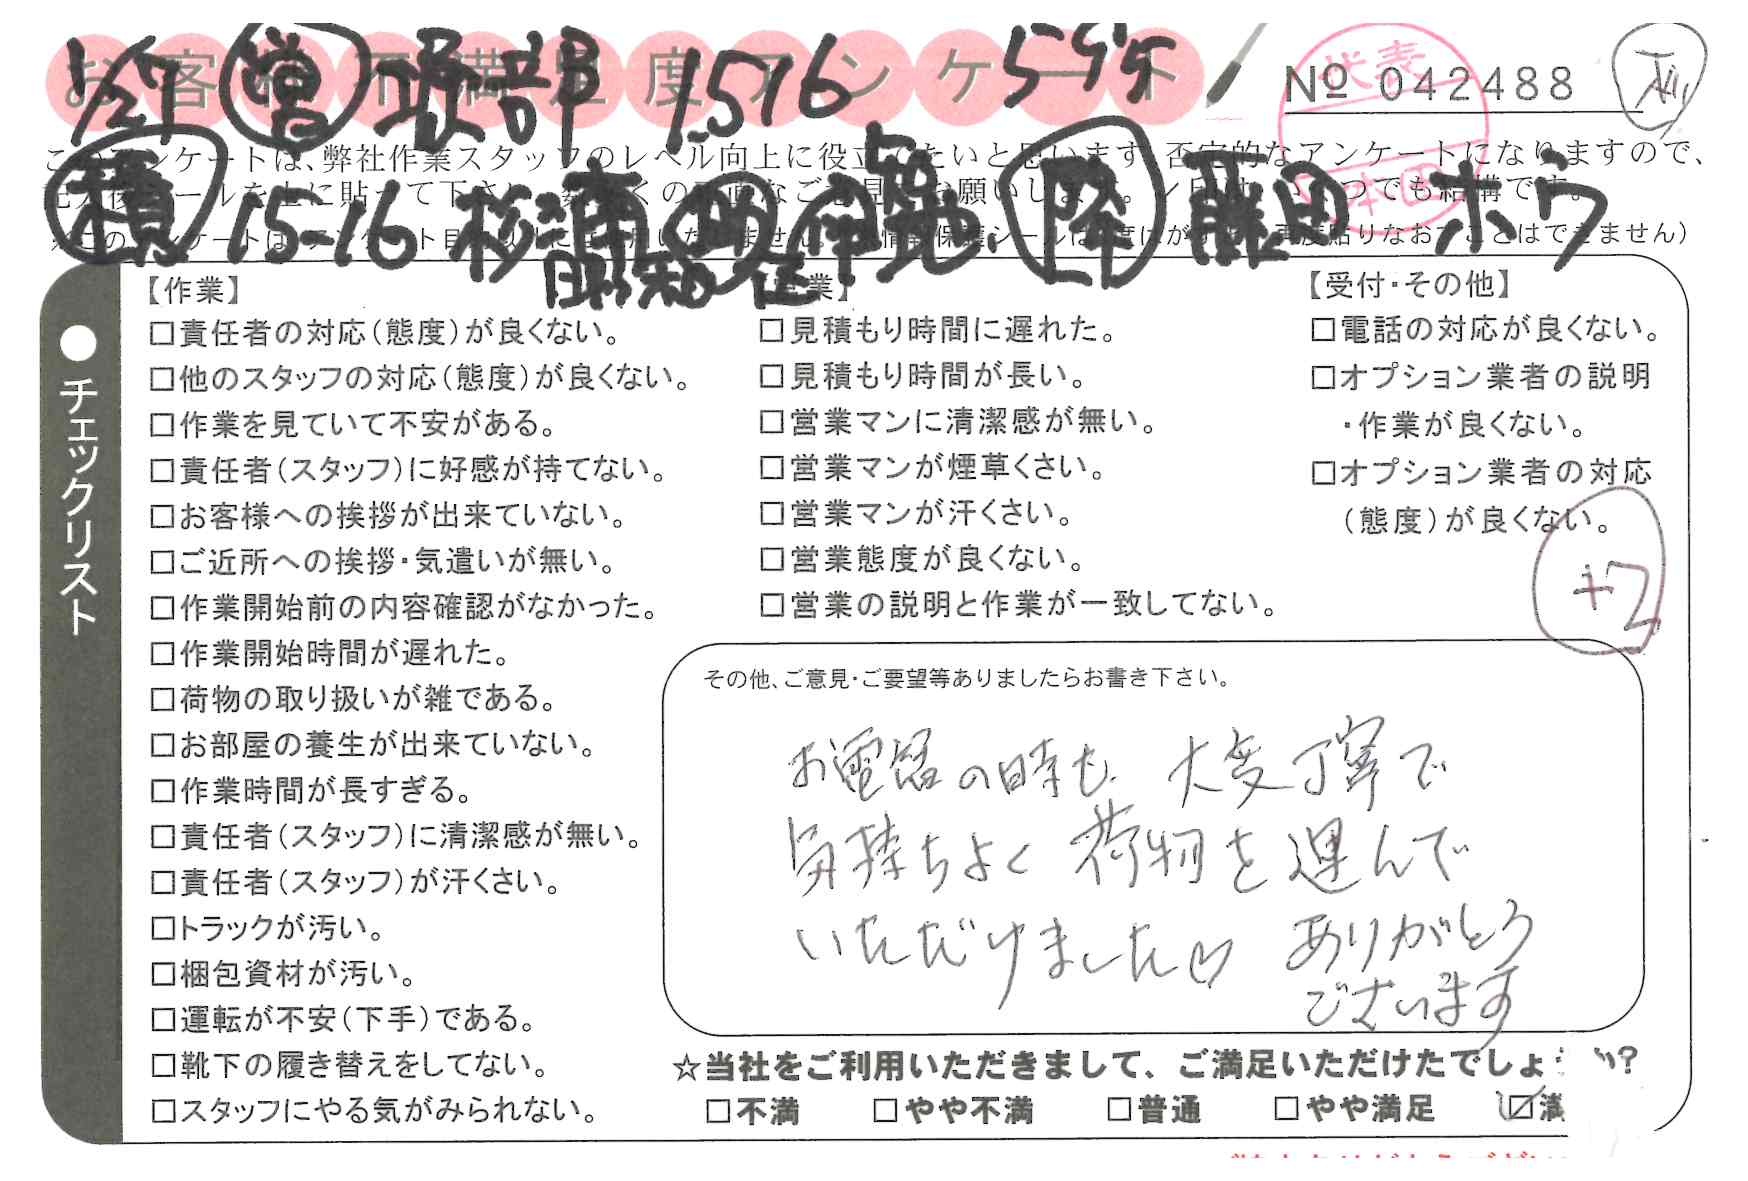 お客様不満足度アンケート
1/27 営 堀部 1516
№ 042488
代表
このアンケートは、弊社作業スタッフのレベル向上に役立てたいと思います。否定的なアンケートになりますので、
積 15-16 杉浦 助 伊勢 降 藤田 ホウ
【作業】
□責任者の対応(態度)が良くない。
□他のスタッフの対応(態度)が良くない。
□作業を見ていて不安がある。
□責任者(スタッフ)に好感が持てない。
□お客様への挨拶が出来ていない。
□ご近所への挨拶・気遣いが無い。
□作業開始前の内容確認がなかった。
□作業開始時間が遅れた。
□荷物の取り扱いが雑である。
□お部屋の養生が出来ていない。
□作業時間が長すぎる。
□責任者(スタッフ)に清潔感が無い。
□責任者(スタッフ)が汗くさい。
□トラックが汚い。
□梱包資材が汚い。
□運転が不安(下手)である。
□靴下の履き替えをしてない。
□スタッフにやる気がみられない。
●チェックリスト
□見積もり時間に遅れた。
□見積もり時間が長い。
□営業マンに清潔感が無い。
□営業マンが煙草くさい。
□営業マンが汗くさい。
□営業態度が良くない。
□営業の説明と作業が一致してない。
【受付・その他】
□電話の対応が良くない。
□オプション業者の説明
・作業が良くない。
□オプション業者の対応
(態度)が良くない。
+2
その他、ご意見・ご要望等ありましたらお書き下さい。
お電話の時も 大変丁寧で
気持ちよく 荷物を運んで
いただけました♡ ありがとう
ございます
☆当社をご利用いただきまして、ご満足いただけたでしょ
□不満 □やや不満 □普通 □やや満足 ☑満